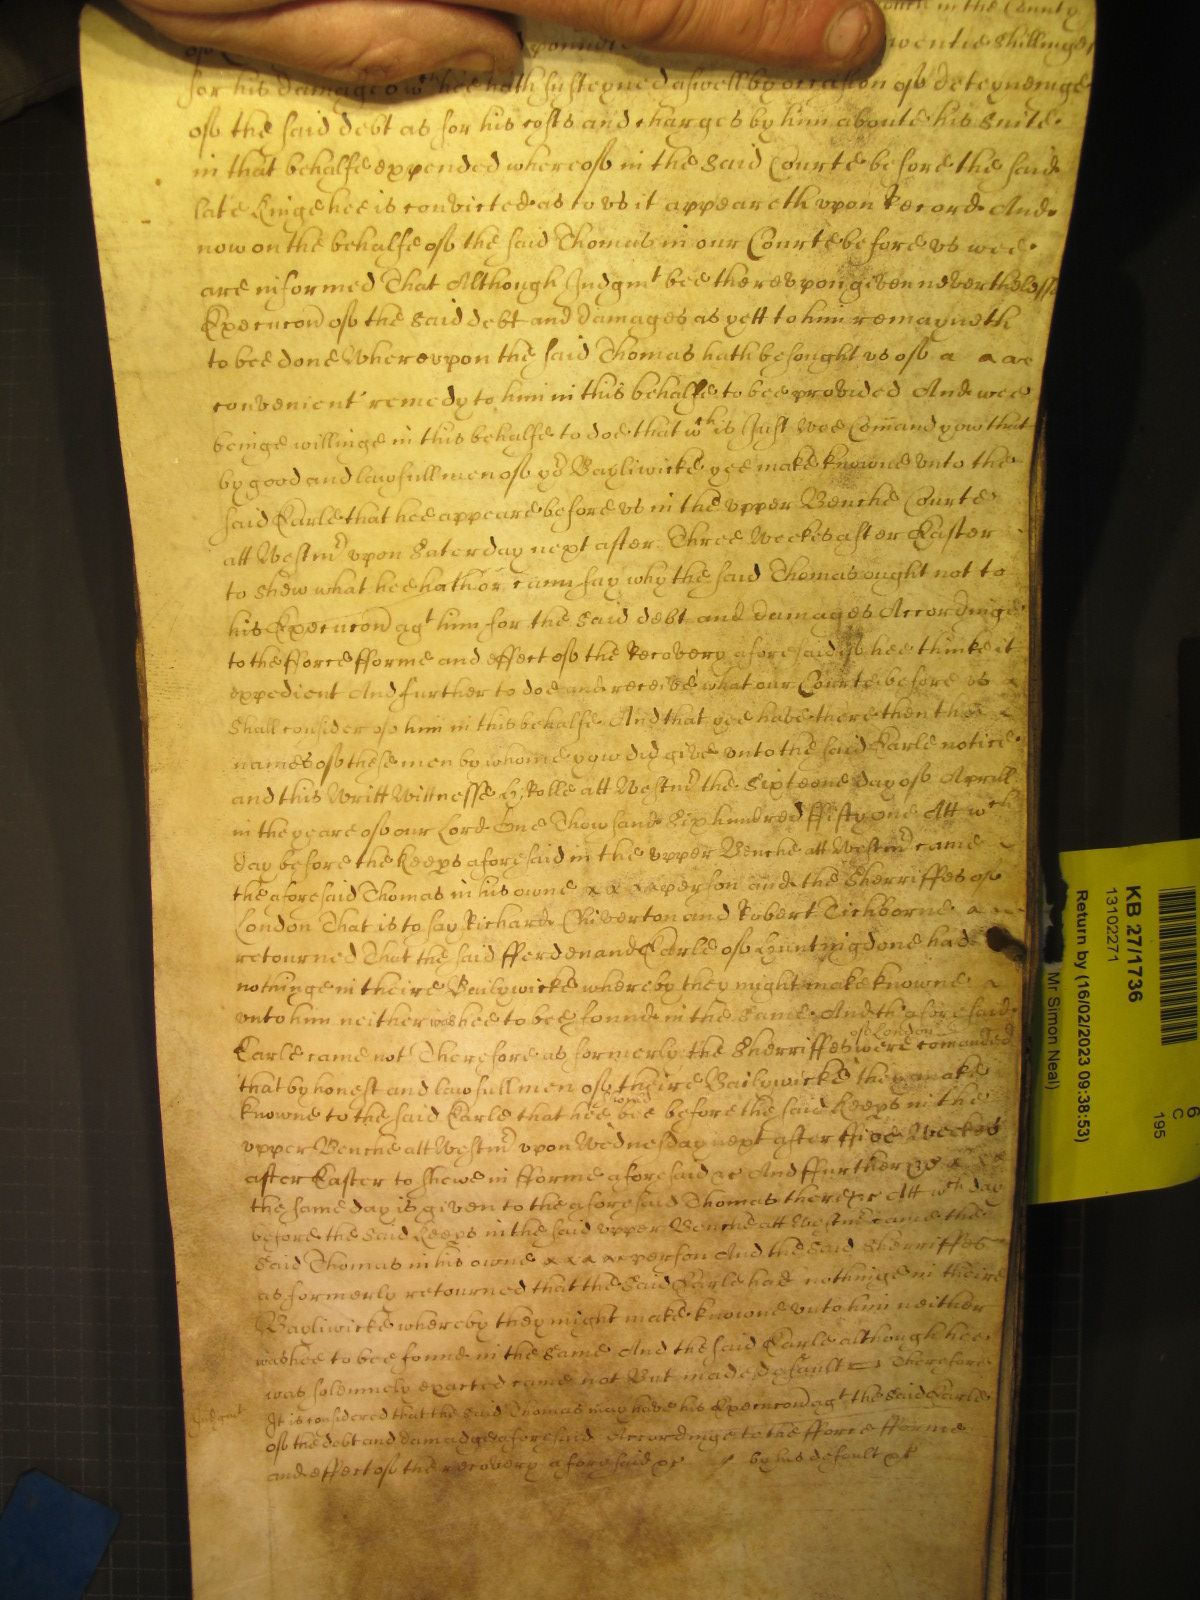 in the County
of pounds twentie Shillinges
for his damages wch hee hath susteyned aswell by occasion of deteyneinge
of the said debt as for his costs and charges by him aboute his Suite
in that behalfe expended whereof in the said Courte before the said
late Kinge hee is convicted as to us it appeareth upon Record And
now on the behalfe of the said Thomas in our Courte before us wee
are informed That Although Judgmt bee thereupon given neverthelesse
Execucon of the said debt and damages as yett to him remayneth
to bee done Whereupon the said Thomas hath besought us of a
convenient remedy to him in this behalfe to bee provided And wee
beinge willinge in this behalfe to doe that wch is Just Wee Comand yow that
by good and lawfull men of yor Bayliwicke yee make knowne unto the
said Earle that hee appeare before us in the upper Benche Courte
att Westmr upon Saterday next after Three Weekes after Easter
to shew what hee hath or cann say why the said Thomas ought not to
his Execucon agt him for the said debt and damages Accordinge
to the fforce fforme and effect of the Recovery aforesaid if hee thinke it
expedient And further to doe and receive what our Courte before us
Shall consider of him in this behalfe And that yee have there then the
names of these men by whome yow did give unto the said Earle notice
and this Writt Wittnesse H Rolle att Westmr the Sixteene day of Aprill
in the yeare of our Lord One Thowsand Six hundred ffifty one Att wch
day before the Keeps aforesaid in the upper Benche att Westmr came
the aforesaid Thomas in his owne person and the Sherriffes of
London That is to say Richard Chiverton and Robert Tichborne
retourned That the said fferdenand Earle of Huntingdone had
nothinge in theire Bailywicke whereby they might make knowne
unto him neither was hee to bee found in the same And th aforesaid
Earle came not Therefore as formerly the Sherriffes of London were comanded
that by honest and lawfull men of theire Bailywicke they make
knowne to the said Earle that hee bee before the said Keeps in the
upper Benche att Westmr upon Wednesday next after ffive Weekes
after Easter to shewe in fforme aforesaid &c And ffurther &c
the same day is given to the aforesaid Thomas there &c Att wch day
before the said Keeps in the said upper Benche att Westmr came the
said Thomas in his owne person And the said Sherriffes
as formerly retourned that the said Earle had nothinge in theire
Bayliwicke whereby they might make knowne unto him neither
was hee to bee found in the same And the said Earle although hee
was solemnely exacted came not But made default Therefore
Judgmt It is considered that the said Thomas may have his Execucon agt the said Earle
of the debt and damadge aforesaid Accordinge to the fforce fforme
and effect of the recovery aforesaid &c by his default &c
KB 27/1736
13102271
Return by (16/02/2023 09:38:53)
Mr Simon Neal)
6
C
195